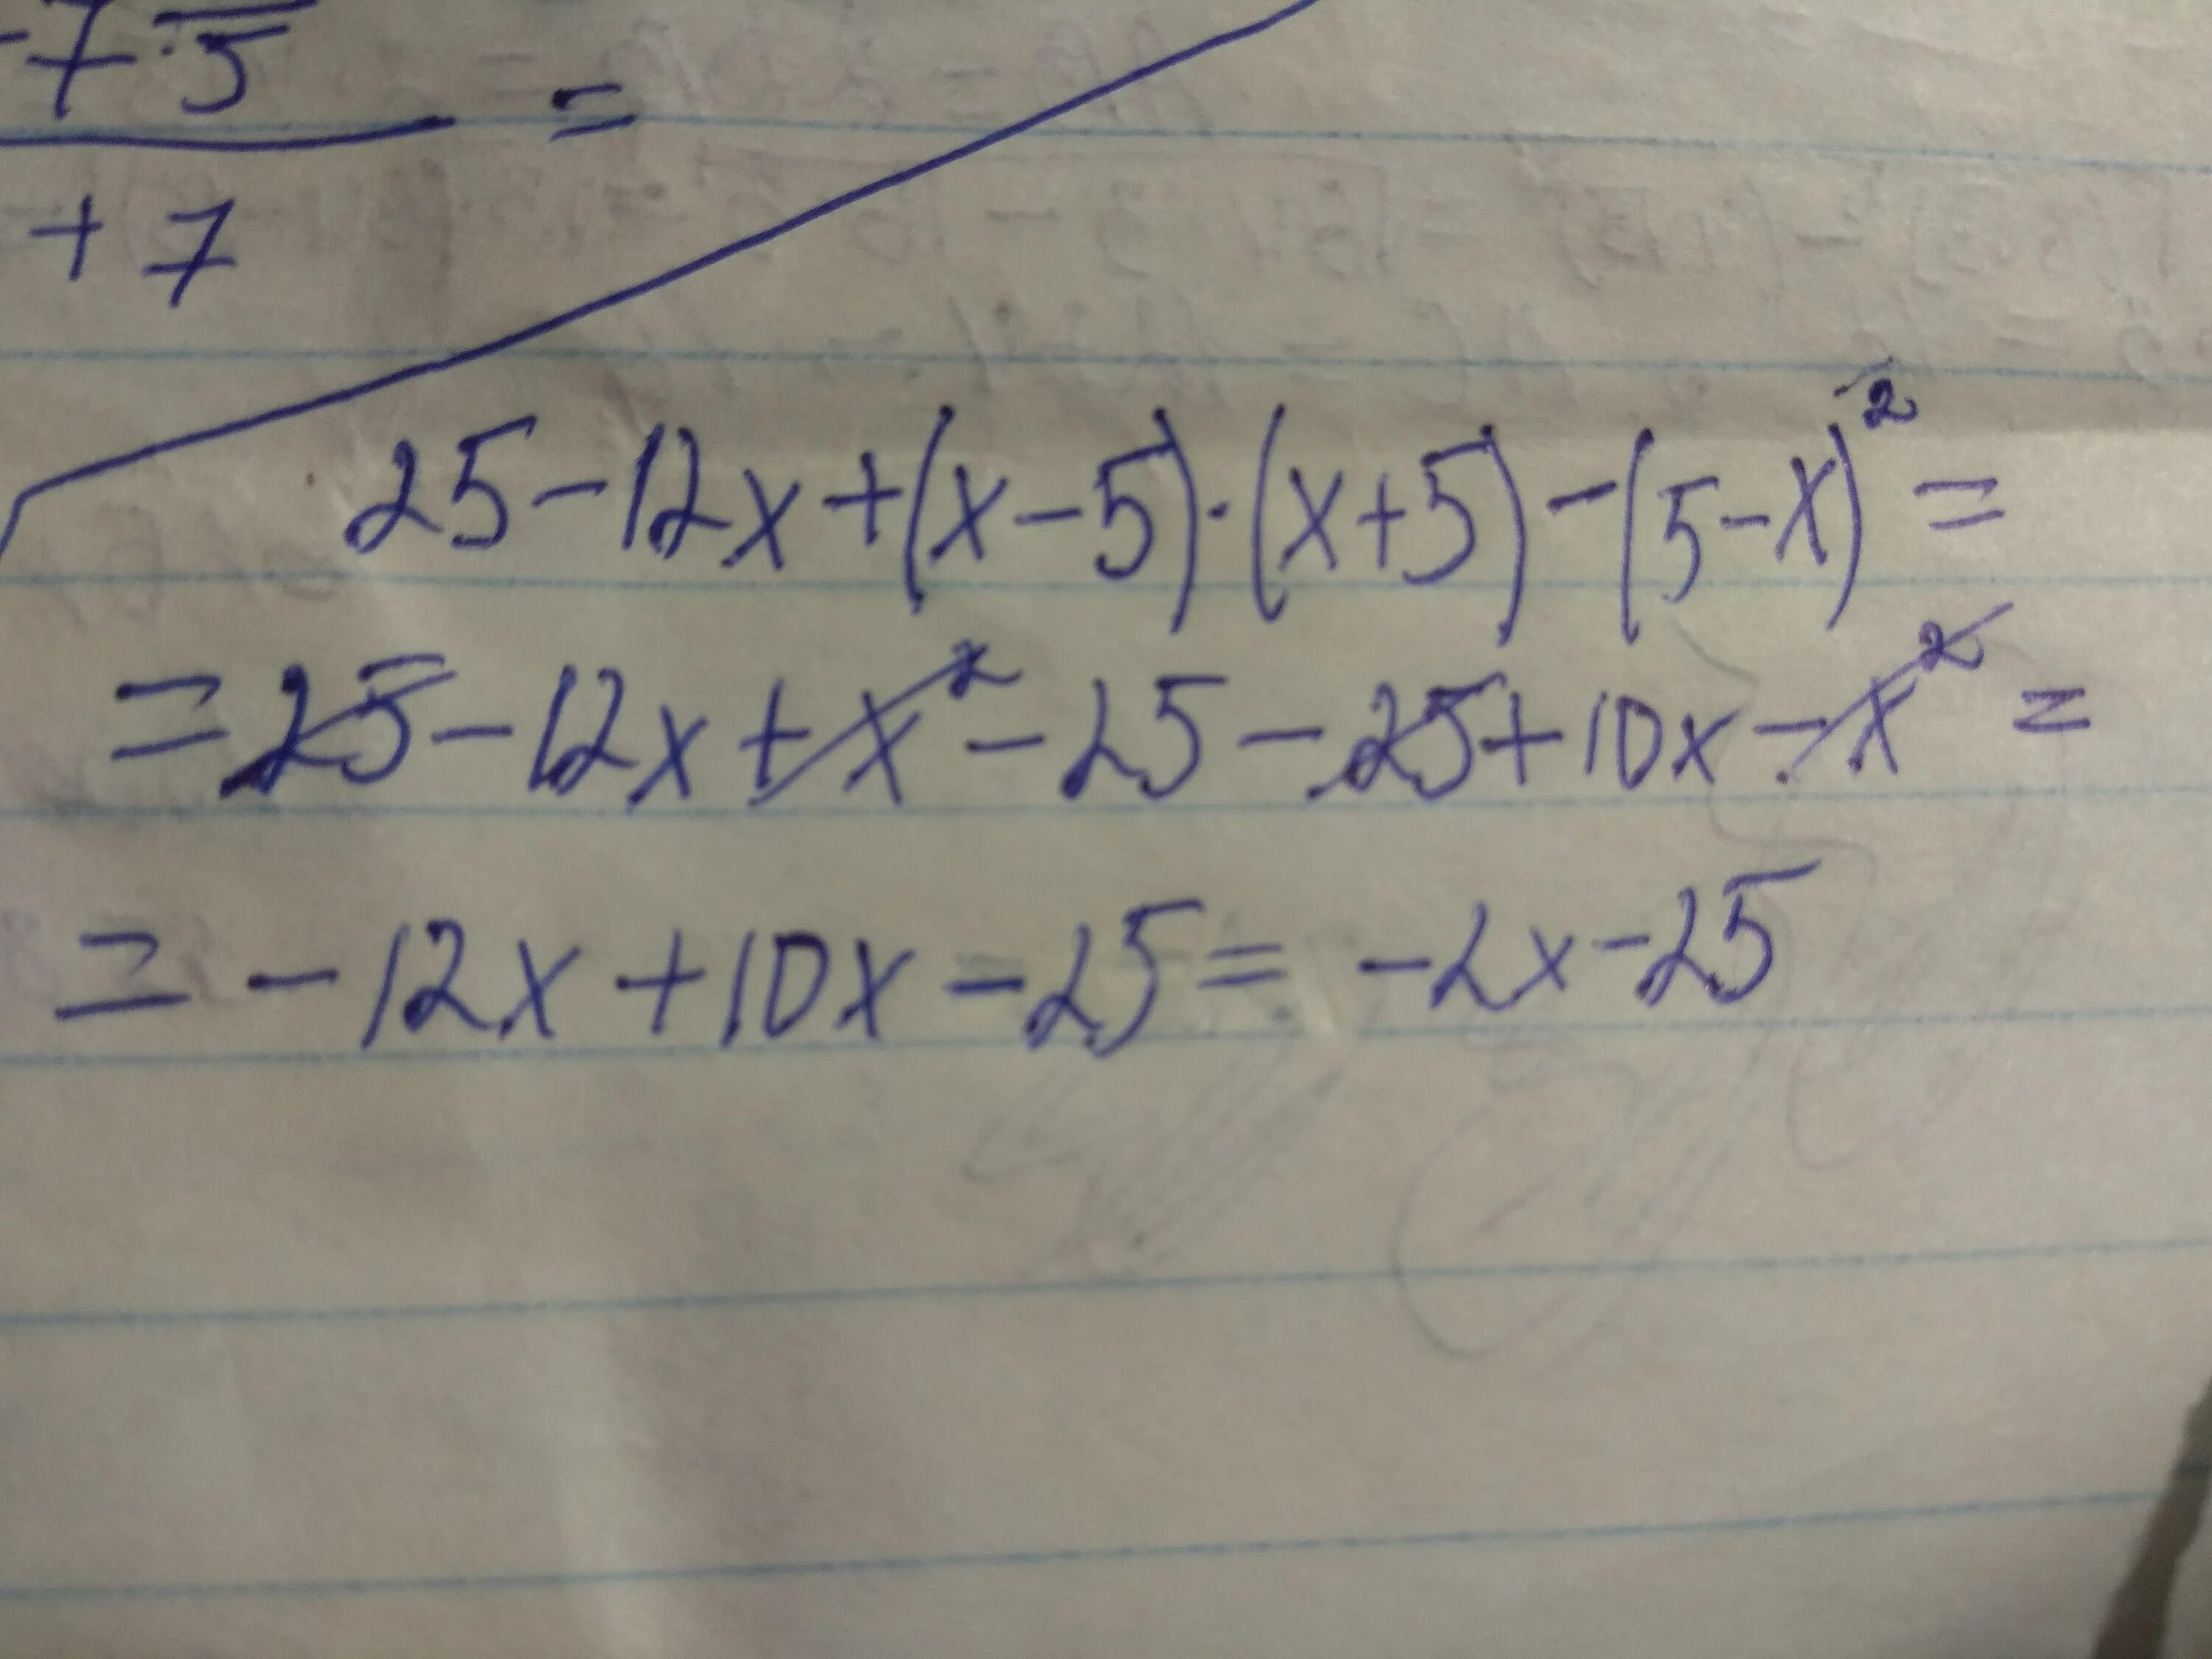 -7·5 =
+7
25-12x+(x-5)·(x+5)-(5-x)²=
=25-12x+x²-25-25+10x-x²=
=-12x+10x-25=-2x-25